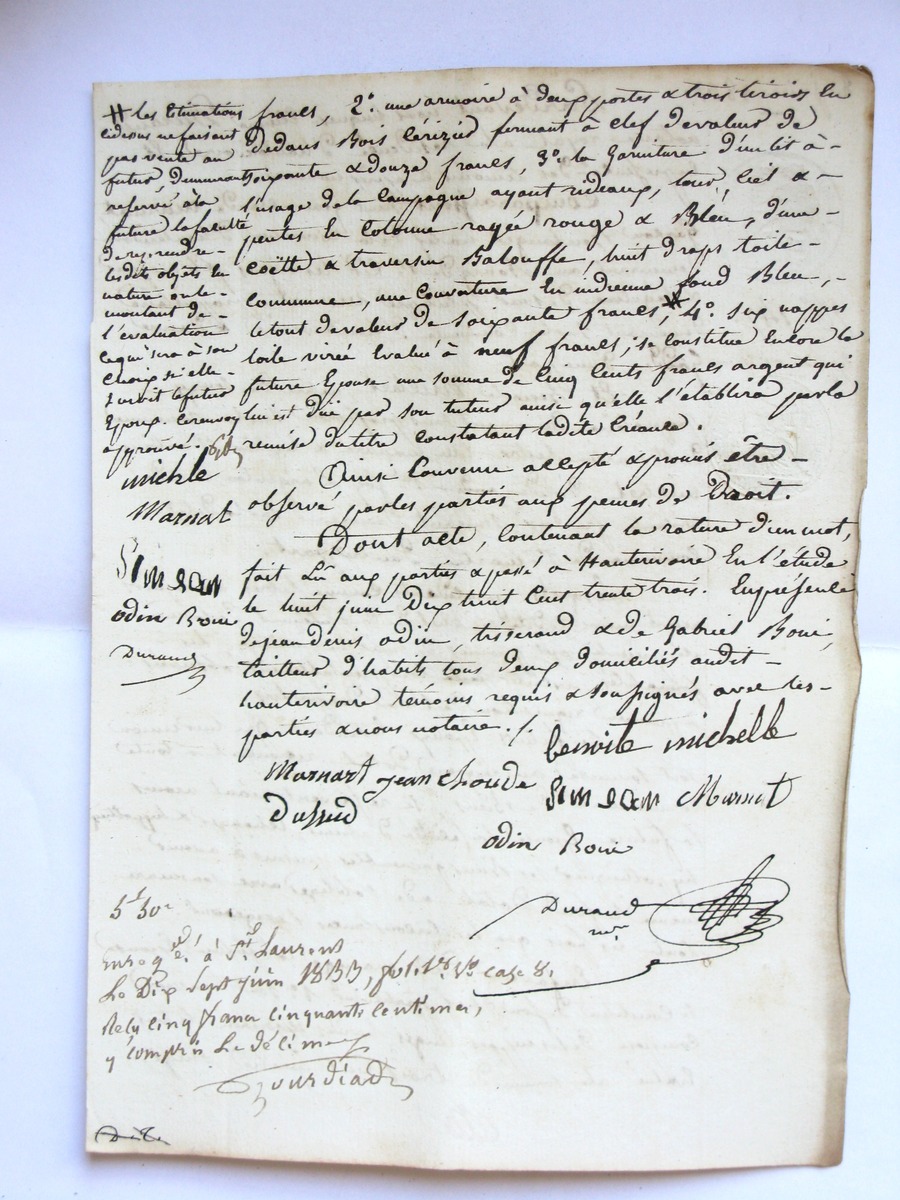 francs, 2.° une armoire à deux portes & trois tiroirs en
dedans Bois Cérizier fermant à clef de valeur de
soixante & douze francs, 3.° la Garniture d'un lit à
l'usage de la Campagne ayant rideaux, tour, ciel &
pentes En Cotonne rayée rouge & Bleu, d'une
coëtte & traversin Balouffe, huit draps toile
commune, une Couverture En indienne fond Bleu,
le tout de valeur de soixante francs, # 4.° six nappes
toile virée Evalué à neuf francs; se constitue Encore la
future Epouse une somme de Cinq Cents francs argent qui
lui est due par son tuteur ainsi qu'elle l'établira par la
remise du titre constatant ladite Créance.
Ainsi Convenu accepté & promis être
observé par les parties aux peines de Droit.
Dont acte, Contenant la rature d'un mot,
fait Lû aux parties & passé à Hauterivoire En l'étude
le huit juin Dix huit Cent trente trois. En présence
de jean denis odin, tisserand & de Gabriel Boui,
tailleur d'habits tous deux domiciliés audit
hauterivoire témoins requis & soussignés avec les
parties & nous notaire. /.
# les Estimations
cidessus ne faisant
pas vente au
futur, demeurant
reservé à la
future la faculté
de reprendre
lesdits objets En
nature ou le
montant de
l'évaluation
ce qui sera à son
Choix si elle
survit le futur
Epoux. Ce renvoy
approuvé.
michle
Marnat
Simean
odin Boui
Durand
benoite michelle
Marnart jean Choude
Simean Marnat
Dussud
odin Boui
Durand
nre
5f 50c
Enregé. à St. Laurent
Le Dix Sept juin 1833, fol. Vo. Case 8.
Reçu cinq francs cinquante centimes,
y compris Le décime